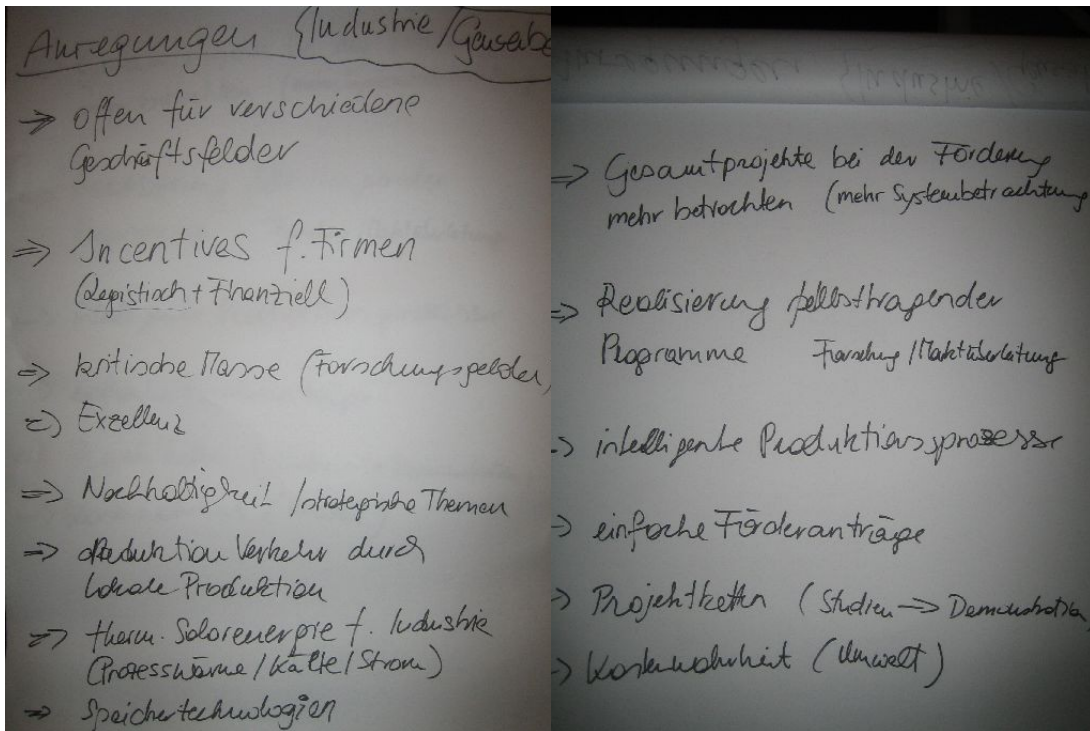 Anregungen {Industrie/Gewerbe
⇒ offen für verschiedene
Geschäftsfelder
⇒ Incentives f. Firmen
(Legistisch + Finanziell)
⇒ kritische Masse (Forschungsgelder)
⇒ Exzellenz
⇒ Nachhaltigkeit / strategische Themen
⇒ Reduktion Verkehr durch
lokale Produktion
⇒ therm. Solarenergie f. Industrie
(Prozesswärme / Kälte / Strom)
⇒ Speichertechnologien
⇒ Gesamtprojekte bei der Förderung
mehr betrachten (mehr Systembetrachtung
⇒ Realisierung selbsttragender
Programme Forschung / Marktüberleitung
⇒ intelligente Produktionsprozesse
⇒ einfache Förderanträge
⇒ Projektketten (Studien → Demonstration
⇒ Kostenwahrheit (Umwelt)